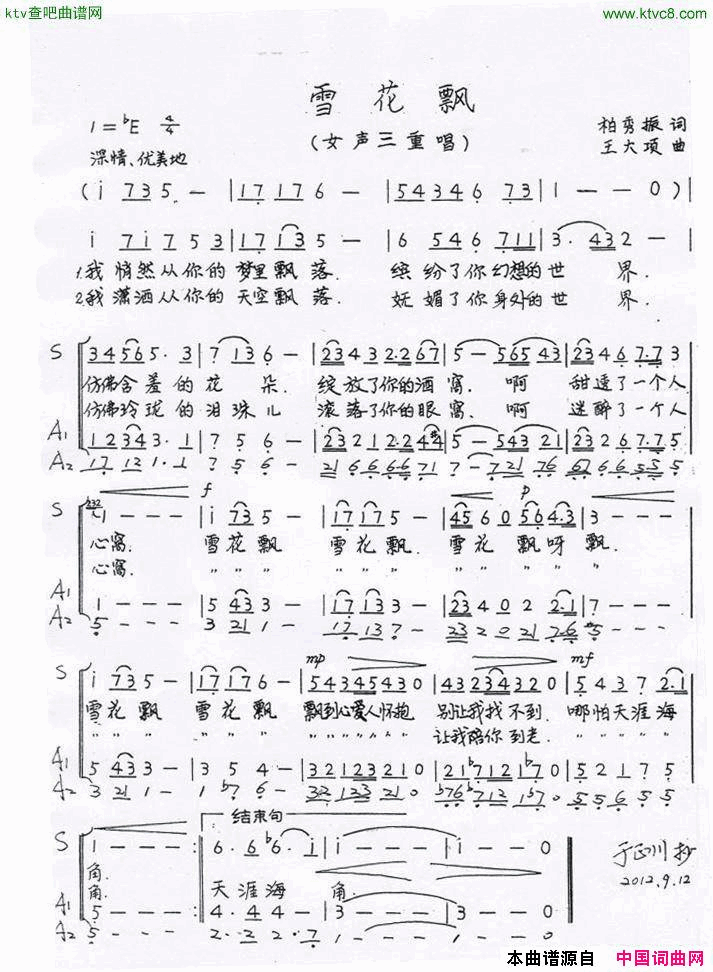 ktv查吧曲谱网 www.ktvc8.com
雪花飘
1=ᵇE 4/4 (女声三重唱) 柏秀振 词
深情、优美地 王大项 曲
(i 735 - | 17 176 - | 54346 73 | 1 - - 0)
i 7i753 | 17 135 - | 6 546 711 | 3. 432 - |
1.我悄然从你的梦里飘落. 缤纷了你幻想的世界.
2.我潇洒从你的天空飘落. 妩媚了你身外的世界.
S 34565. 3 | 7 136 - | 23432.267 | 5 - 56543 | 2346 7.73
仿佛含羞的花朵. 绽放了你的酒窝. 啊 甜透了一个人
仿佛玲珑的泪珠儿 滚落了你的眼窝. 啊 迷醉了一个人
A1 12343. 1 | 7 5 6 - | 23212.24#4 | 5 - 54321 | 2346 7.75
A2
f p
S 1 - - - | i 735 - | 17175 - | 4560564.3 | 3 - - - |
心窝. 雪花飘 雪花飘. 雪花飘呀飘.
心窝. 〃 〃 〃 〃 〃 〃 〃 〃 〃 〃 〃
A1 1 - - - | 5 433 - | 17133 - | 23402 2.1 | 7 - - - |
A2 5 - - - | 3 21 1 - | 17 137 - | 2320217.6 | #5 - - - |
mp mf
S i 735 - | 17176 - | 54345430 | 43234320 | 5 4 3 7 2.1
雪花飘 雪花飘 飘到心爱人怀抱 别让我找不到. 哪怕天涯海
〃 〃 〃 〃 〃 〃 〃〃〃〃〃〃〃 让我陪你到老. 〃 〃 〃 〃 〃
A1 5 433 - | 3 5 4 - | 32123210 | 21ᵇ7121ᵇ70 | 5 2 1 7 5
A2 3 21 1 - | 1 ᵇ7 6 - | 33 123 210 | ᵇ76ᵇ712 1ᵇ70 | 5 5 6 5 5
结束句
S 1 - - - :| 6. 6 ᵇ6. i | i - - - | i - - 0 ‖
角.
角. 天涯海角.
于正川 抄
2012.9.12
A1 5 - - - :| 4. 4 4 - | 3 - - - | 3 - - 0 ‖
A2 5 - - - :| 2. 2 2. 7 | 1 - - - | 1 - - 0 ‖
本曲谱源自 中国词曲网